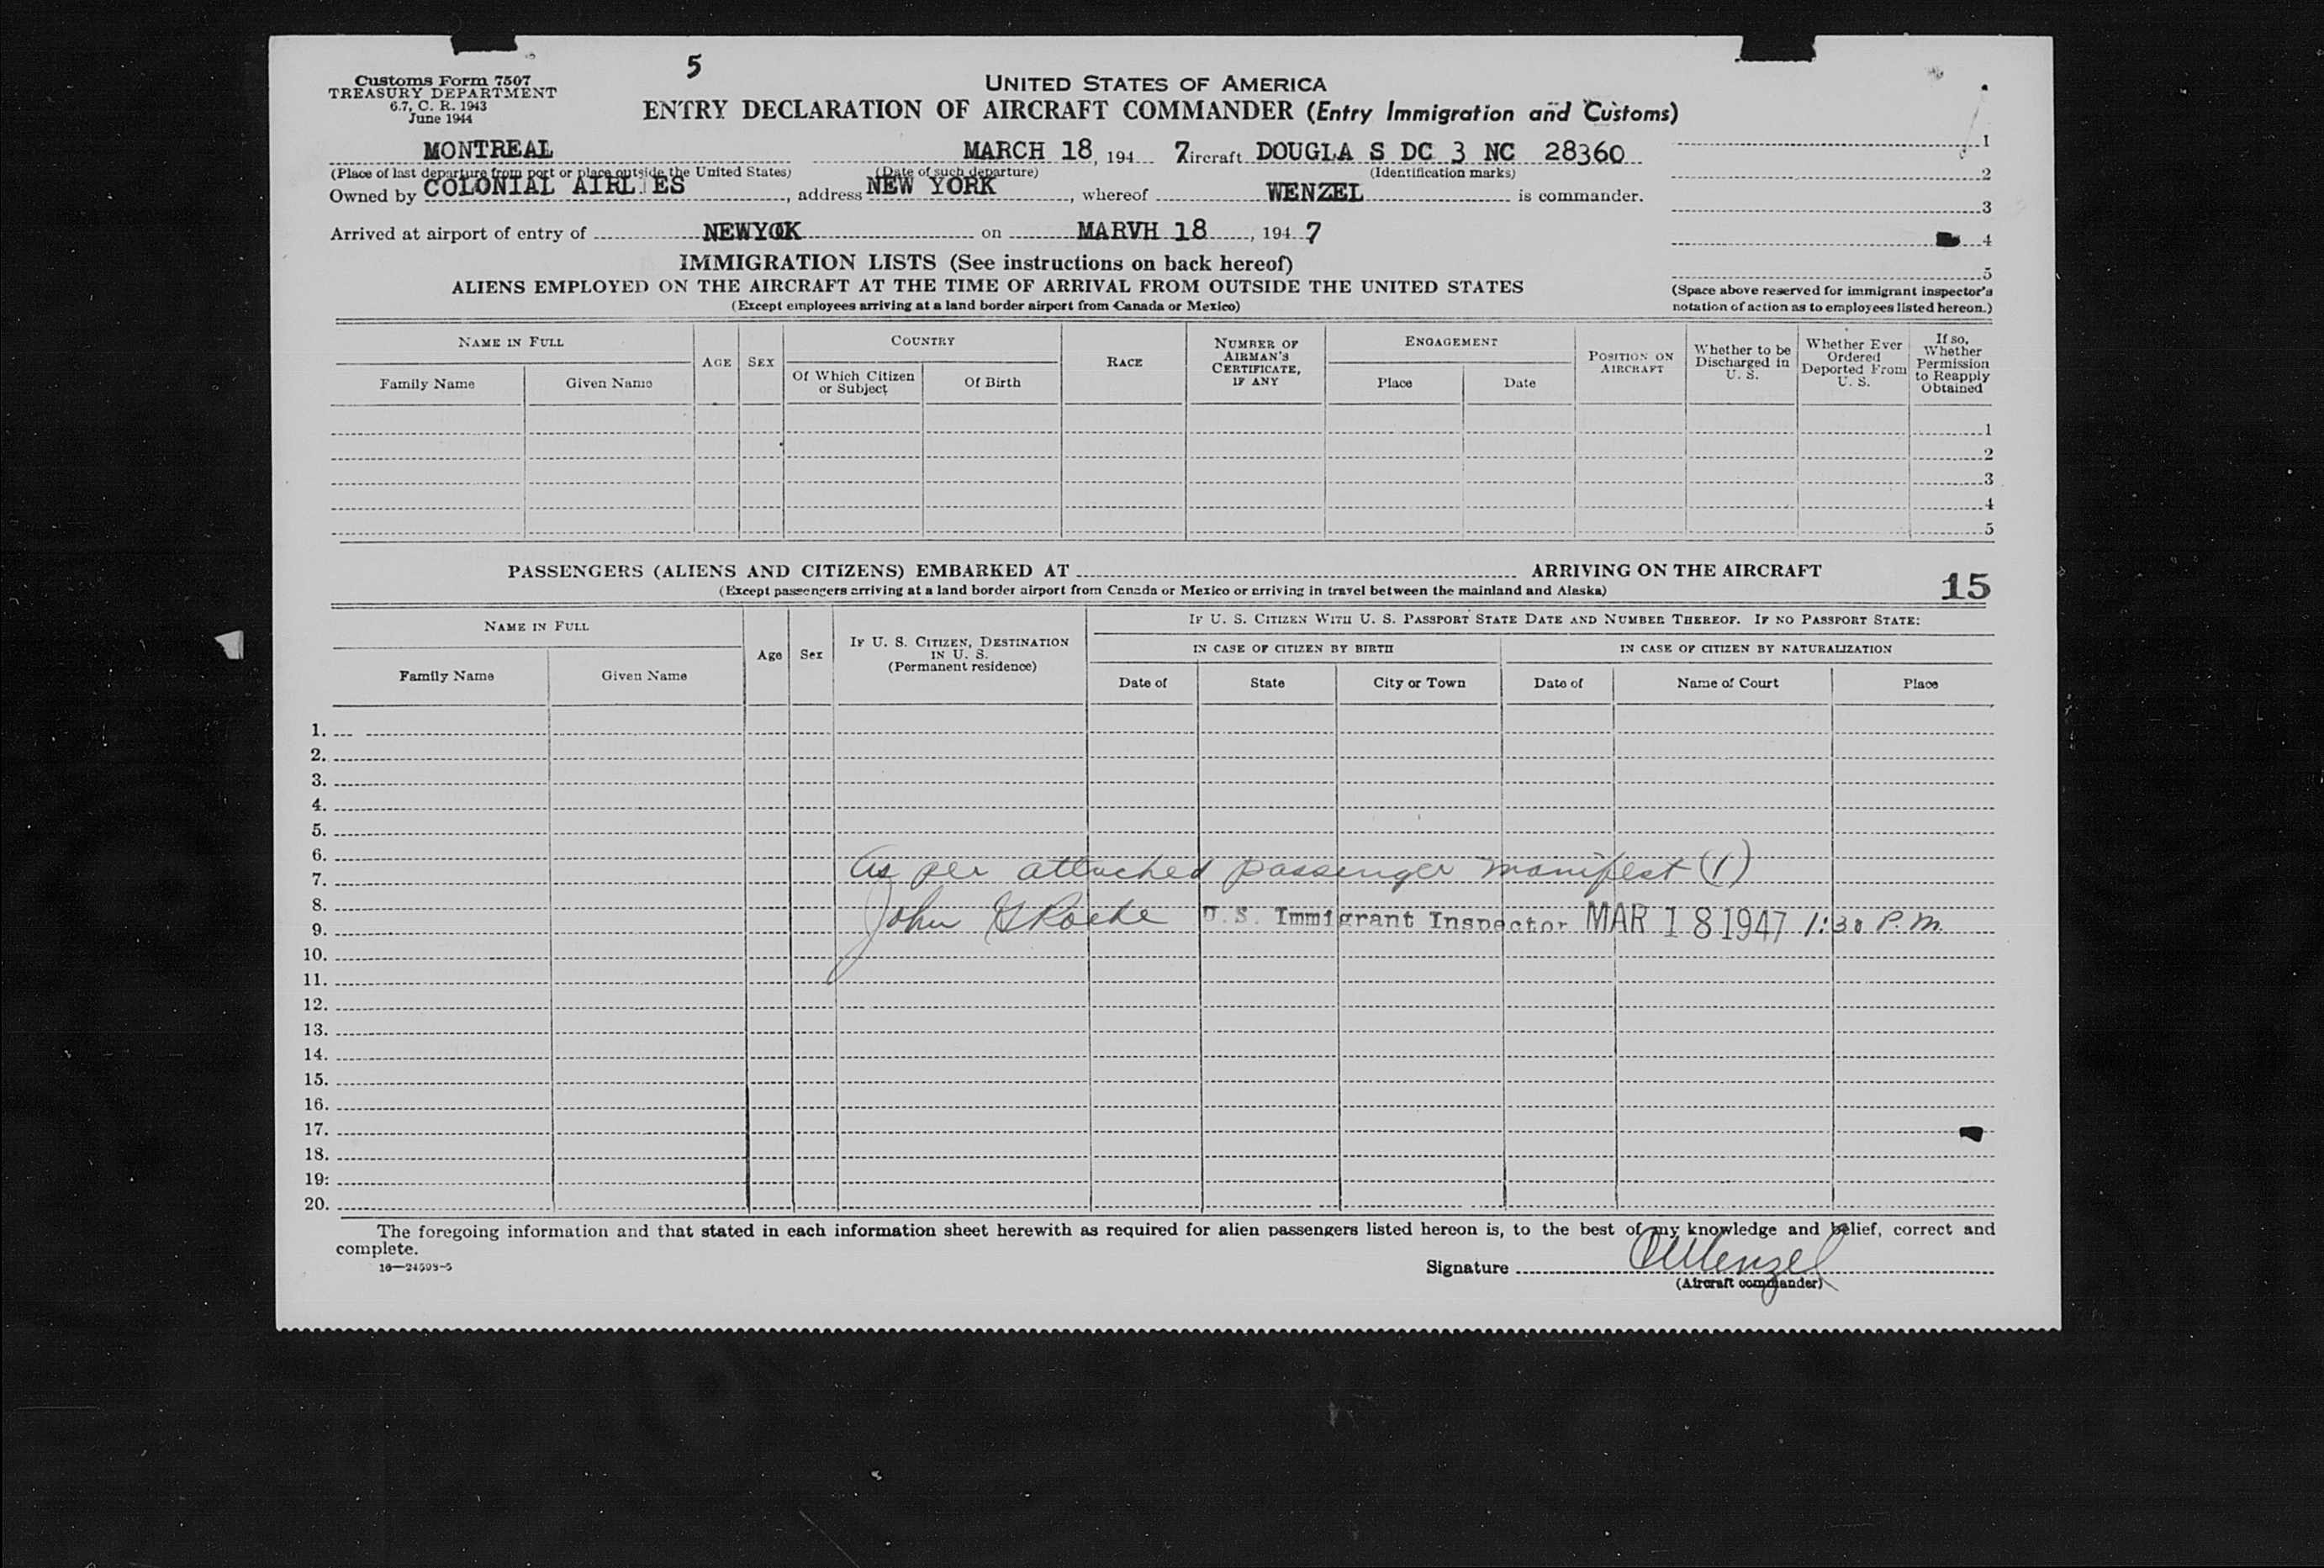 5
Customs Form 7507
TREASURY DEPARTMENT
6.7, C. R. 1943
June 1944
UNITED STATES OF AMERICA
ENTRY DECLARATION OF AIRCRAFT COMMANDER (Entry Immigration and Customs)
MONTREAL MARCH 18, 194 7 ircraft DOUGLA S DC 3 NC 28360
(Place of last departure from port or place outside the United States) (Date of such departure) (Identification marks)
Owned by COLONIAL AIRL ES, address NEW YORK, whereof WENZEL is commander.
Arrived at airport of entry of NEWYOK on MARVH 18, 194 7
1
2
3
4
5
(Space above reserved for immigrant inspector's
notation of action as to employees listed hereon.)
IMMIGRATION LISTS (See instructions on back hereof)
ALIENS EMPLOYED ON THE AIRCRAFT AT THE TIME OF ARRIVAL FROM OUTSIDE THE UNITED STATES
(Except employees arriving at a land border airport from Canada or Mexico)
NAME IN FULL
Family Name
Given Name
AGE
SEX
COUNTRY
Of Which Citizen
or Subject
Of Birth
RACE
NUMBER OF
AIRMAN'S
CERTIFICATE,
IF ANY
ENGAGEMENT
Place
Date
POSITION ON
AIRCRAFT
Whether to be
Discharged in
U. S.
Whether Ever
Ordered
Deported From
U. S.
If so,
Whether
Permission
to Reapply
Obtained
1
2
3
4
5
PASSENGERS (ALIENS AND CITIZENS) EMBARKED AT ARRIVING ON THE AIRCRAFT
(Except passengers arriving at a land border airport from Canada or Mexico or arriving in travel between the mainland and Alaska)
15
NAME IN FULL
Family Name
Given Name
Age
Sex
IF U. S. CITIZEN, DESTINATION
IN U. S.
(Permanent residence)
IF U. S. CITIZEN WITH U. S. PASSPORT STATE DATE AND NUMBER THEREOF. IF NO PASSPORT STATE:
IN CASE OF CITIZEN BY BIRTH
IN CASE OF CITIZEN BY NATURALIZATION
Date of
State
City or Town
Date of
Name of Court
Place
1.
2.
3.
4.
5.
6.
7. As per attached passenger manifest (1)
8.
9. John Roche U. S. Immigrant Inspector MAR 18 1947 1:30 P.M.
10.
11.
12.
13.
14.
15.
16.
17.
18.
19:
20.
The foregoing information and that stated in each information sheet herewith as required for alien passengers listed hereon is, to the best of my knowledge and belief, correct and
complete.
16—24598-5
Signature Wenzel
(Aircraft commander)